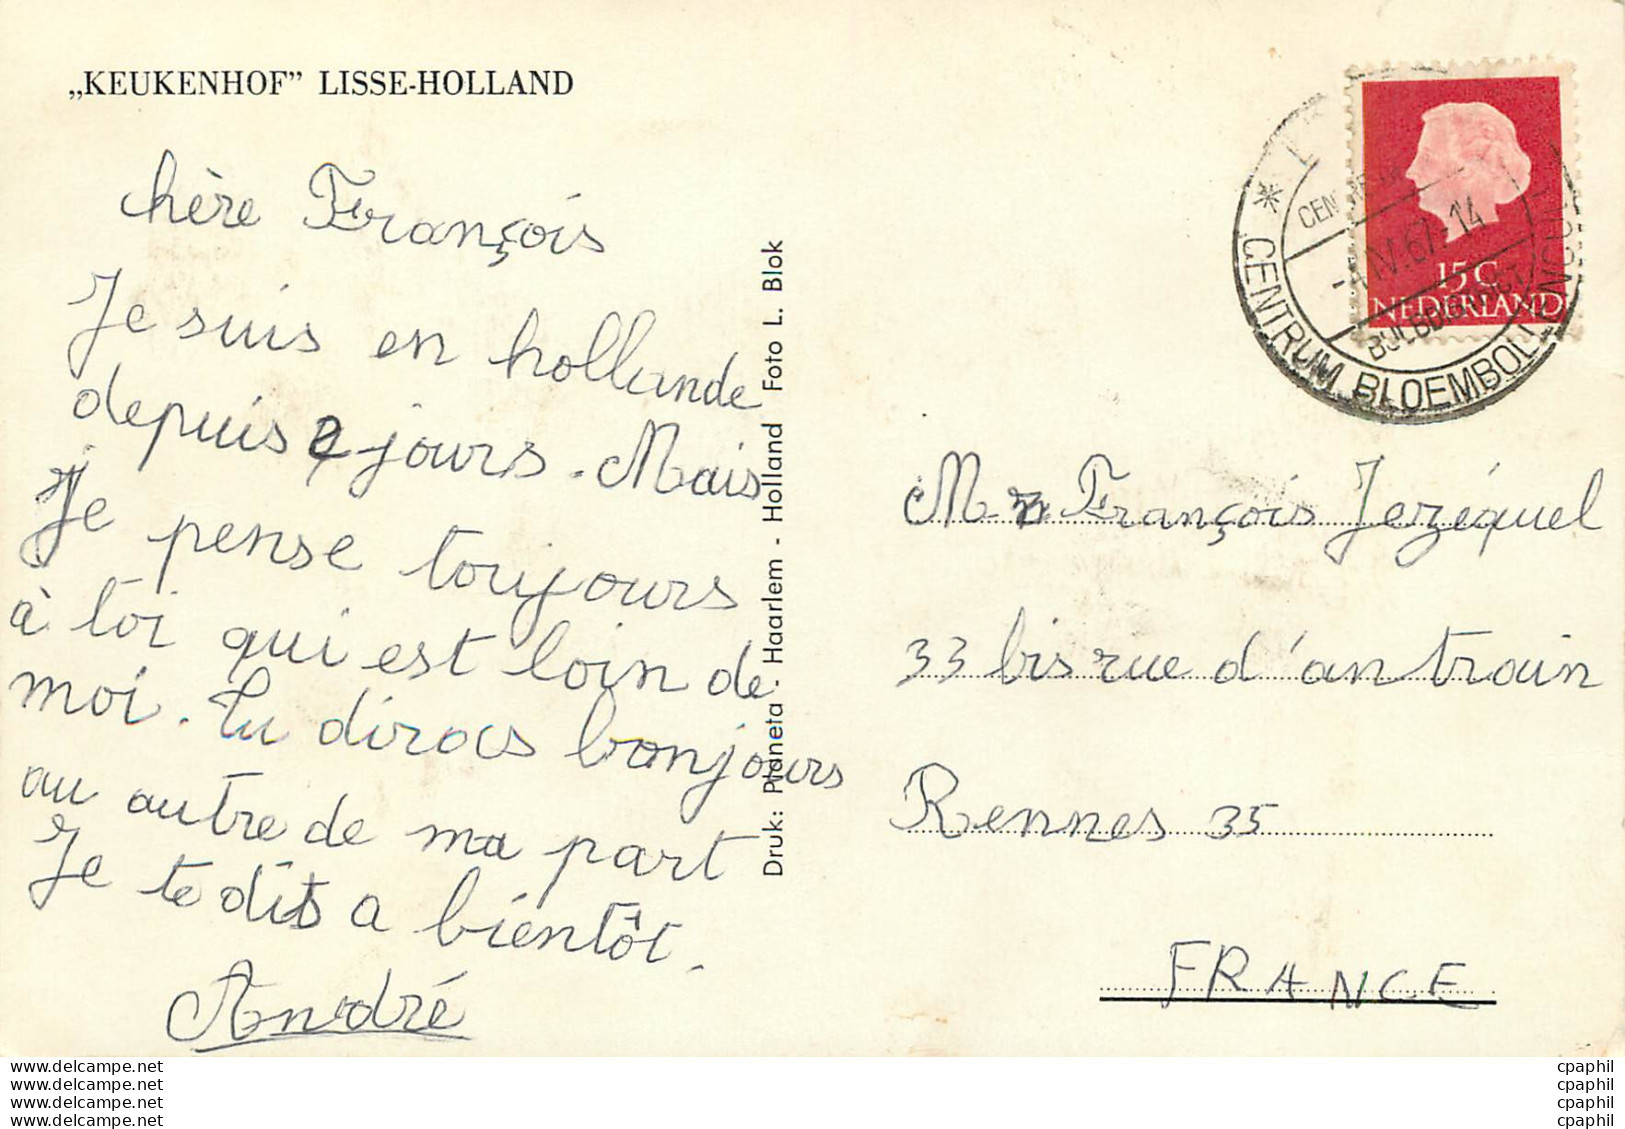 „KEUKENHOF” LISSE-HOLLAND
hère François
Je suis en hollande
depuis 2 jours. Mais
Je pense toujours
à toi qui est loin de
moi. Tu diras bonjours
au autre de ma part
Je te dis a bientôt.
André
Druk: Planeta - Haarlem - Holland Foto L. Blok
15 C
NEDERLAND
* CENTRUM BLOEMBOLLEN
IV.67-14
Mr François Jezéquel
33 bis rue d'antrain
Rennes 35
FRANCE
www.delcampe.net
www.delcampe.net
www.delcampe.net
www.delcampe.net
cpaphil
cpaphil
cpaphil
cpaphil